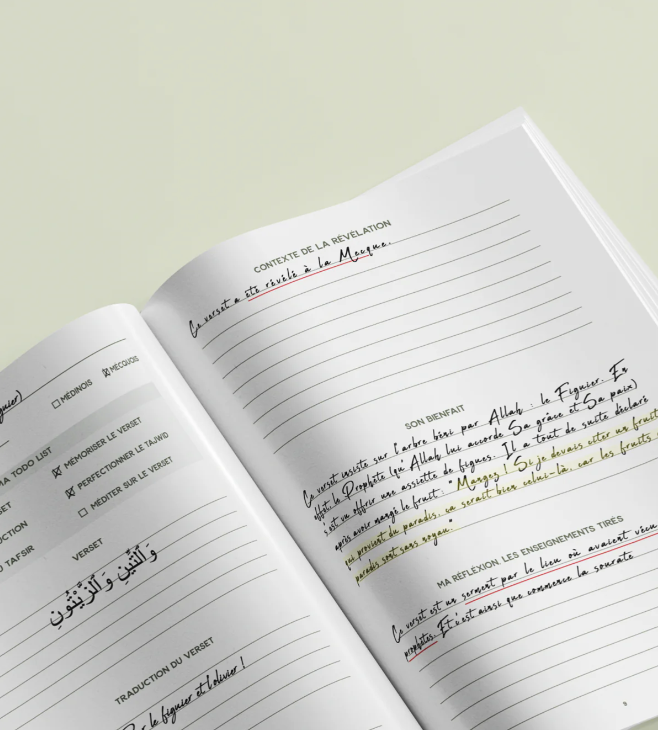 guier)
MÉDINOIS MÉCQUOIS
MA TODO LIST
MÉMORISER LE VERSET
PERFECTIONNER LE TAJWID
MÉDITER SUR LE VERSET
TAFSIR
VERSET
وَٱلتِّينِ وَٱلزَّيْتُونِ
TRADUCTION DU VERSET
le figuier et l'olivier !
CONTEXTE DE LA RÉVÉLATION
Ce verset a été révélé à la Mecque.
SON BIENFAIT
Ce verset insiste sur l'arbre béni par Allah : le Figuier. En
effet, le Prophète (qu'Allah lui accorde Sa grâce et Sa paix)
s'est vu offrir une assiette de figues. Il a tout de suite déclaré
après avoir mangé le fruit : "Mangez ! Si je devais citer un fruit
qui provient du paradis, ça serait bien celui-là, car les fruits
paradis sont sans noyau."
MA RÉFLEXION, LES ENSEIGNEMENTS TIRÉS
Ce verset est un serment par le lieu où avaient vécu
prophètes. Et c'est ainsi que commence la sourate
9